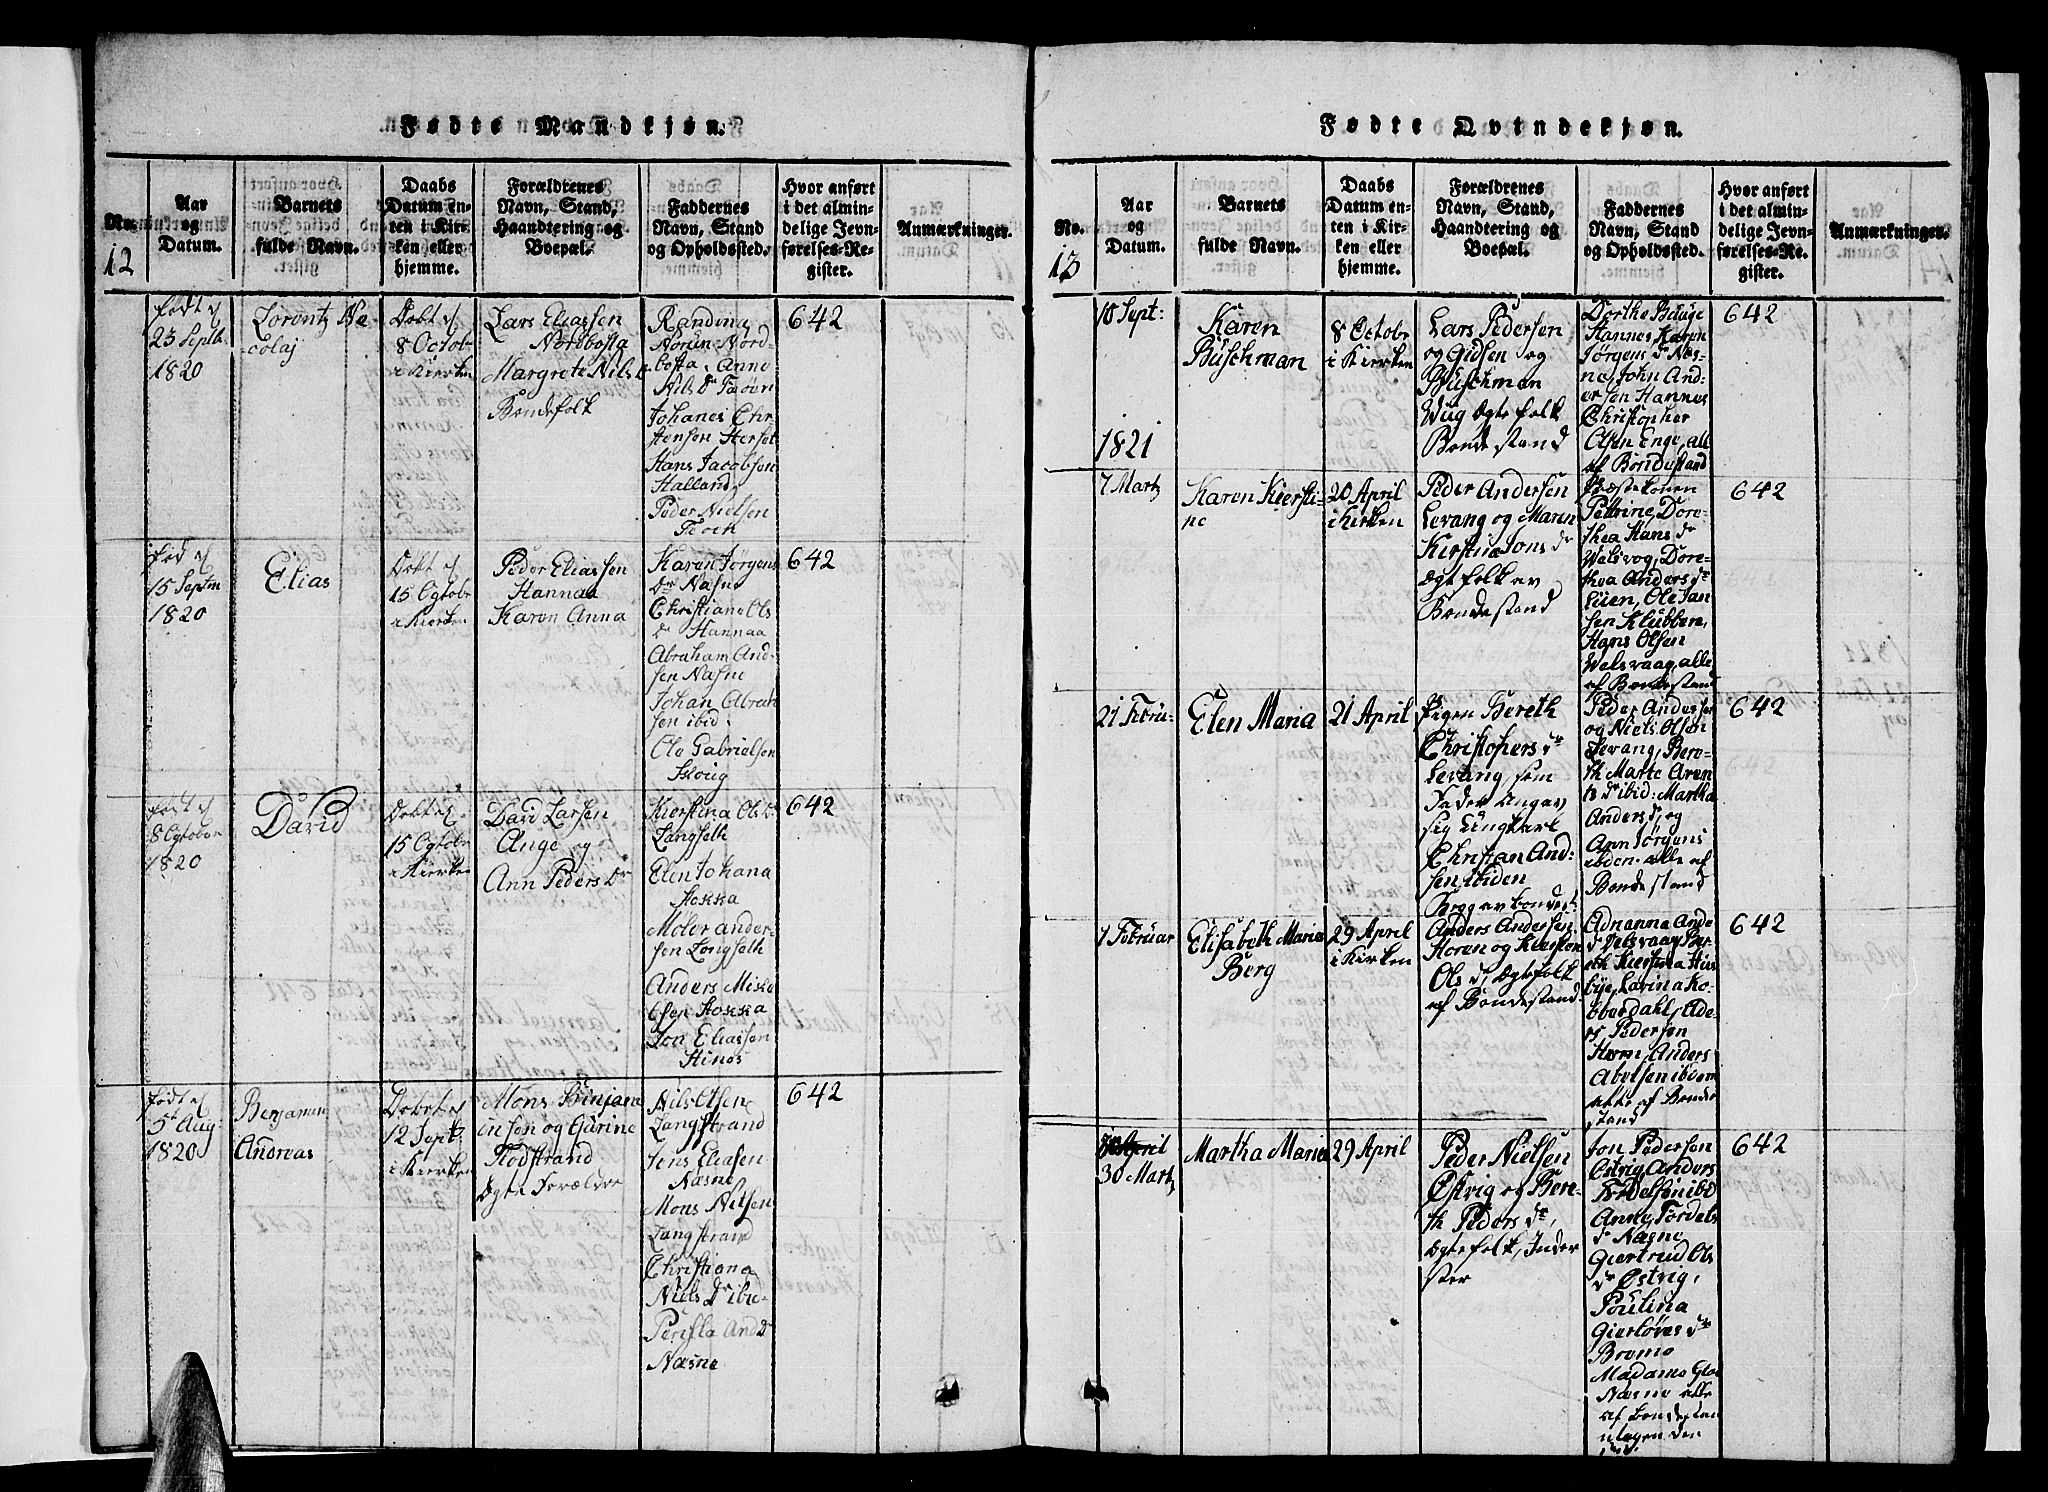 Fødte Mandkjøn.
No.
12
Aar
og
Datum.
Barnets
fulde Navn.
Daabs
Datum en-
ten i Kir-
ken eller
hjemme.
Forældrenes
Navn, Stand,
Haandtering og
Boepæl.
Faddernes
Navn, Stand
og Opholdssted.
Hvor anført
i det almin-
delige Jevn-
førelses-Re-
gister.
Anmærkninger.
23 Septb.
1820
Lorentz Ne-
colaj
8 Octobr
i Kierken
Lars Eliassen
Nordbosta
Margrete Nils
Bondefolk
Randina
Nordbosta
Anne
Nils Dr
Johanes Chr-
stensen
Hans Jacobsen
Halland
Peder Nielsen
642
15 Septm
1820
Elias
15 Ogtobr
i Kierken
Peder Eliassen
Hannaa
Karen Anna
Karen Jørgens
Dr Næsne
Christiana Ols
Dr Hannaa
Abraham And-
sen Næsne
Johan Abrah
sen ibid:
Ole Gabrielsen
Skoug
642
8 Ogtober
1820
David
15 Ogtobr
i Kierken
David Larsen
Ange og
Ann Peders Dr
Kierstina Ols Dr
Langseth
Elen Johana
Hokka
Møler ander-
sen Langseth
Anders
Hokka
Jon Eliassen
642
5t Aug:
1820
Benjamin
Andreas
12 Sept:
i Kierken
Mons Binjam
ensen og Garine
Flodstrand
Ægte Forældre
Nils Olsen
Langstrand
Jens Eliasen
Næsne
Mons Nilsen
Langstrand
Christiana
Niels Dr ibid
And Dr
Næsne
642
Fødte Qvindekjøn.
No.
13
Aar
og
Datum.
Barnets
fulde Navn.
Daabs
Datum en-
ten i Kir-
ken eller
hjemme.
Forældrenes
Navn, Stand,
Haandtering og
Boepæl.
Faddernes
Navn, Stand
og Opholdssted.
Hvor anført
i det almin-
delige Jevn-
førelses-Re-
gister.
Anmærkninger.
10 Sept:
Karen
Buschman
8 Octobr
i Kirken
Lars Pedersen
og Gidsen og
Buschman
Wug Ægtefolk
Bondestand
Dorthe
Hannes Karen
Jørgens Dr Næs-
ne, John And-
ersen Hannes
Christopher
Olsen Enge, all
af Bondestand
642
1821
7 Martz
Karen Kiersti-
ne
20 April
i Kirken
Peder Andersen
Levang og Maren
Kirstina Jons Dr
Ægtefolk av
Bondestand
Præstekonen
Petrine, Dore-
thea Hans Dr
Walsvog, Dore-
thea Anders Dr
Lüen, Ole Jan
sen Klubben,
Hans Olsen
Walsvaag, alle
af Bondestand
642
21 Febru-
Elen Maria
21 April
Pigen Bereth
Christophers Dr
Levang som
Fader Angav
sig Ungkarl
Christian And-
sen ibiden
Peder Andersen
og Niels Olsen
Levang, Bere-
th Marte Aren
ts Dr ibid: Martha
Anders Dr og
Ann Jørgens
ibden alle af
Bondestand
642
1 Februar
Elisabeth Maria
Berg
29 April
i Kirken
Anders Andersen
Horen og Kiersten
Ols Dr, Ægtefolk
af Bondestand
Adrianna Ande
Dr Valsvaag, Be-
reth Kierstina Hus
bye, Larina Ko-
berdahl, Ande
rs Pedersen
Horn, Anders
Abelsen ibidem
alle af Bonde
stand
642
30 Martz
Martha Maria
29 April
Peder Nielsen
Østvig og Bere-
th Peders Dr,
Ægtefolk, Inder
ster
Jon Pedersen
Østvig, Anders
Tordelsen ibid
Anne Tordels
Dr Næsne
Giertrud Ols
Dr Østvig,
Poulina
Gierløvs Dr
Bromo
Madame
Næsne alle
af Bondestan
642